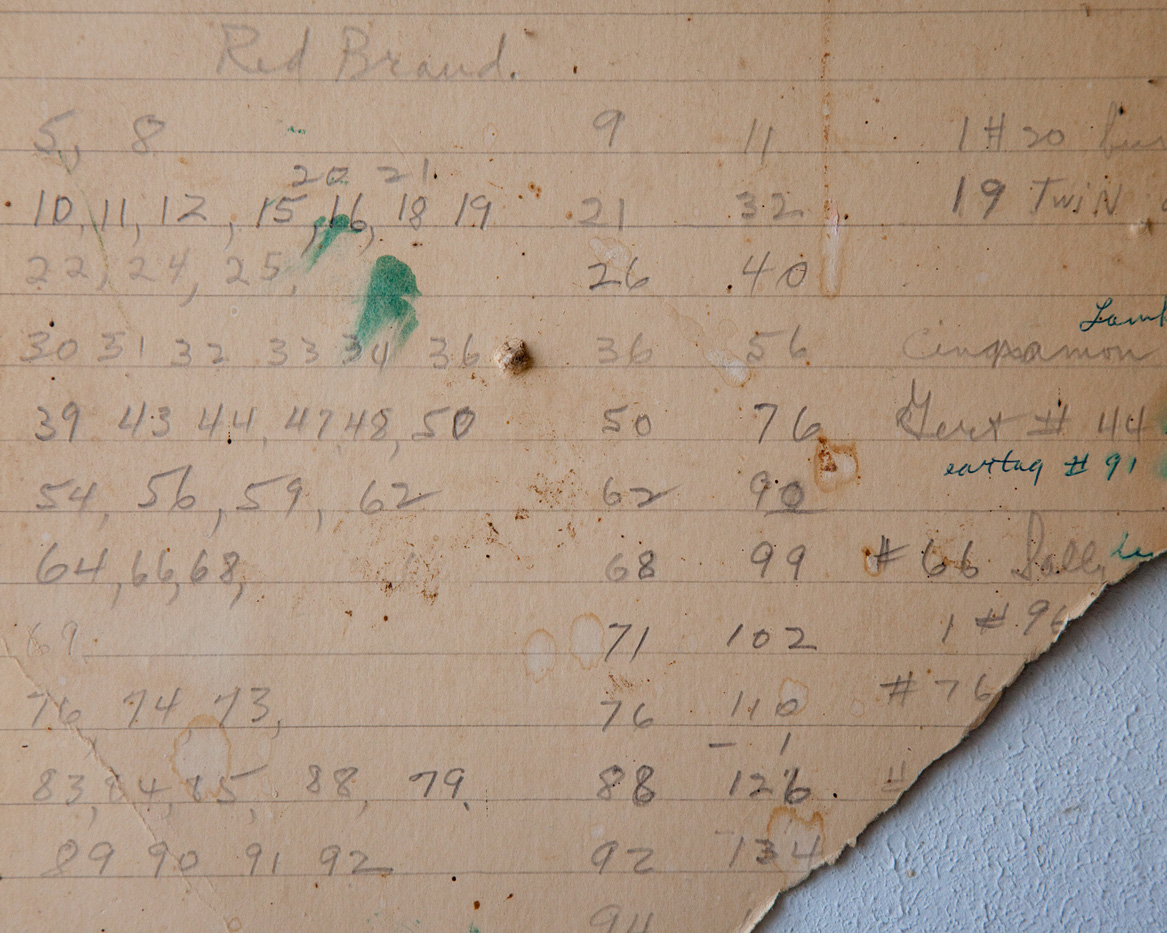 Red Brand.
5, 8 9 11 1 # 20
20 21
10, 11, 12, 15, 16, 18 19 21 32 19 TwiN
22, 24, 25, 26 40
Lamb
30 31 32 33 34 36 36 56
39 43 44, 47 48, 50 50 76 Gert # 44
eartag # 91
54, 56, 59, 62 62 90
64, 66, 68, 68 99 # 66 Sally
69, 71 102 1 # 96
76 74 73, 76 110 # 76
- 1
83, 84, 85, 88, 79, 88 126 #
89 90 91 92 92 134
94